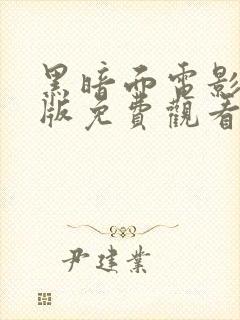 黑暗而電影
版免費觀看
尹建業